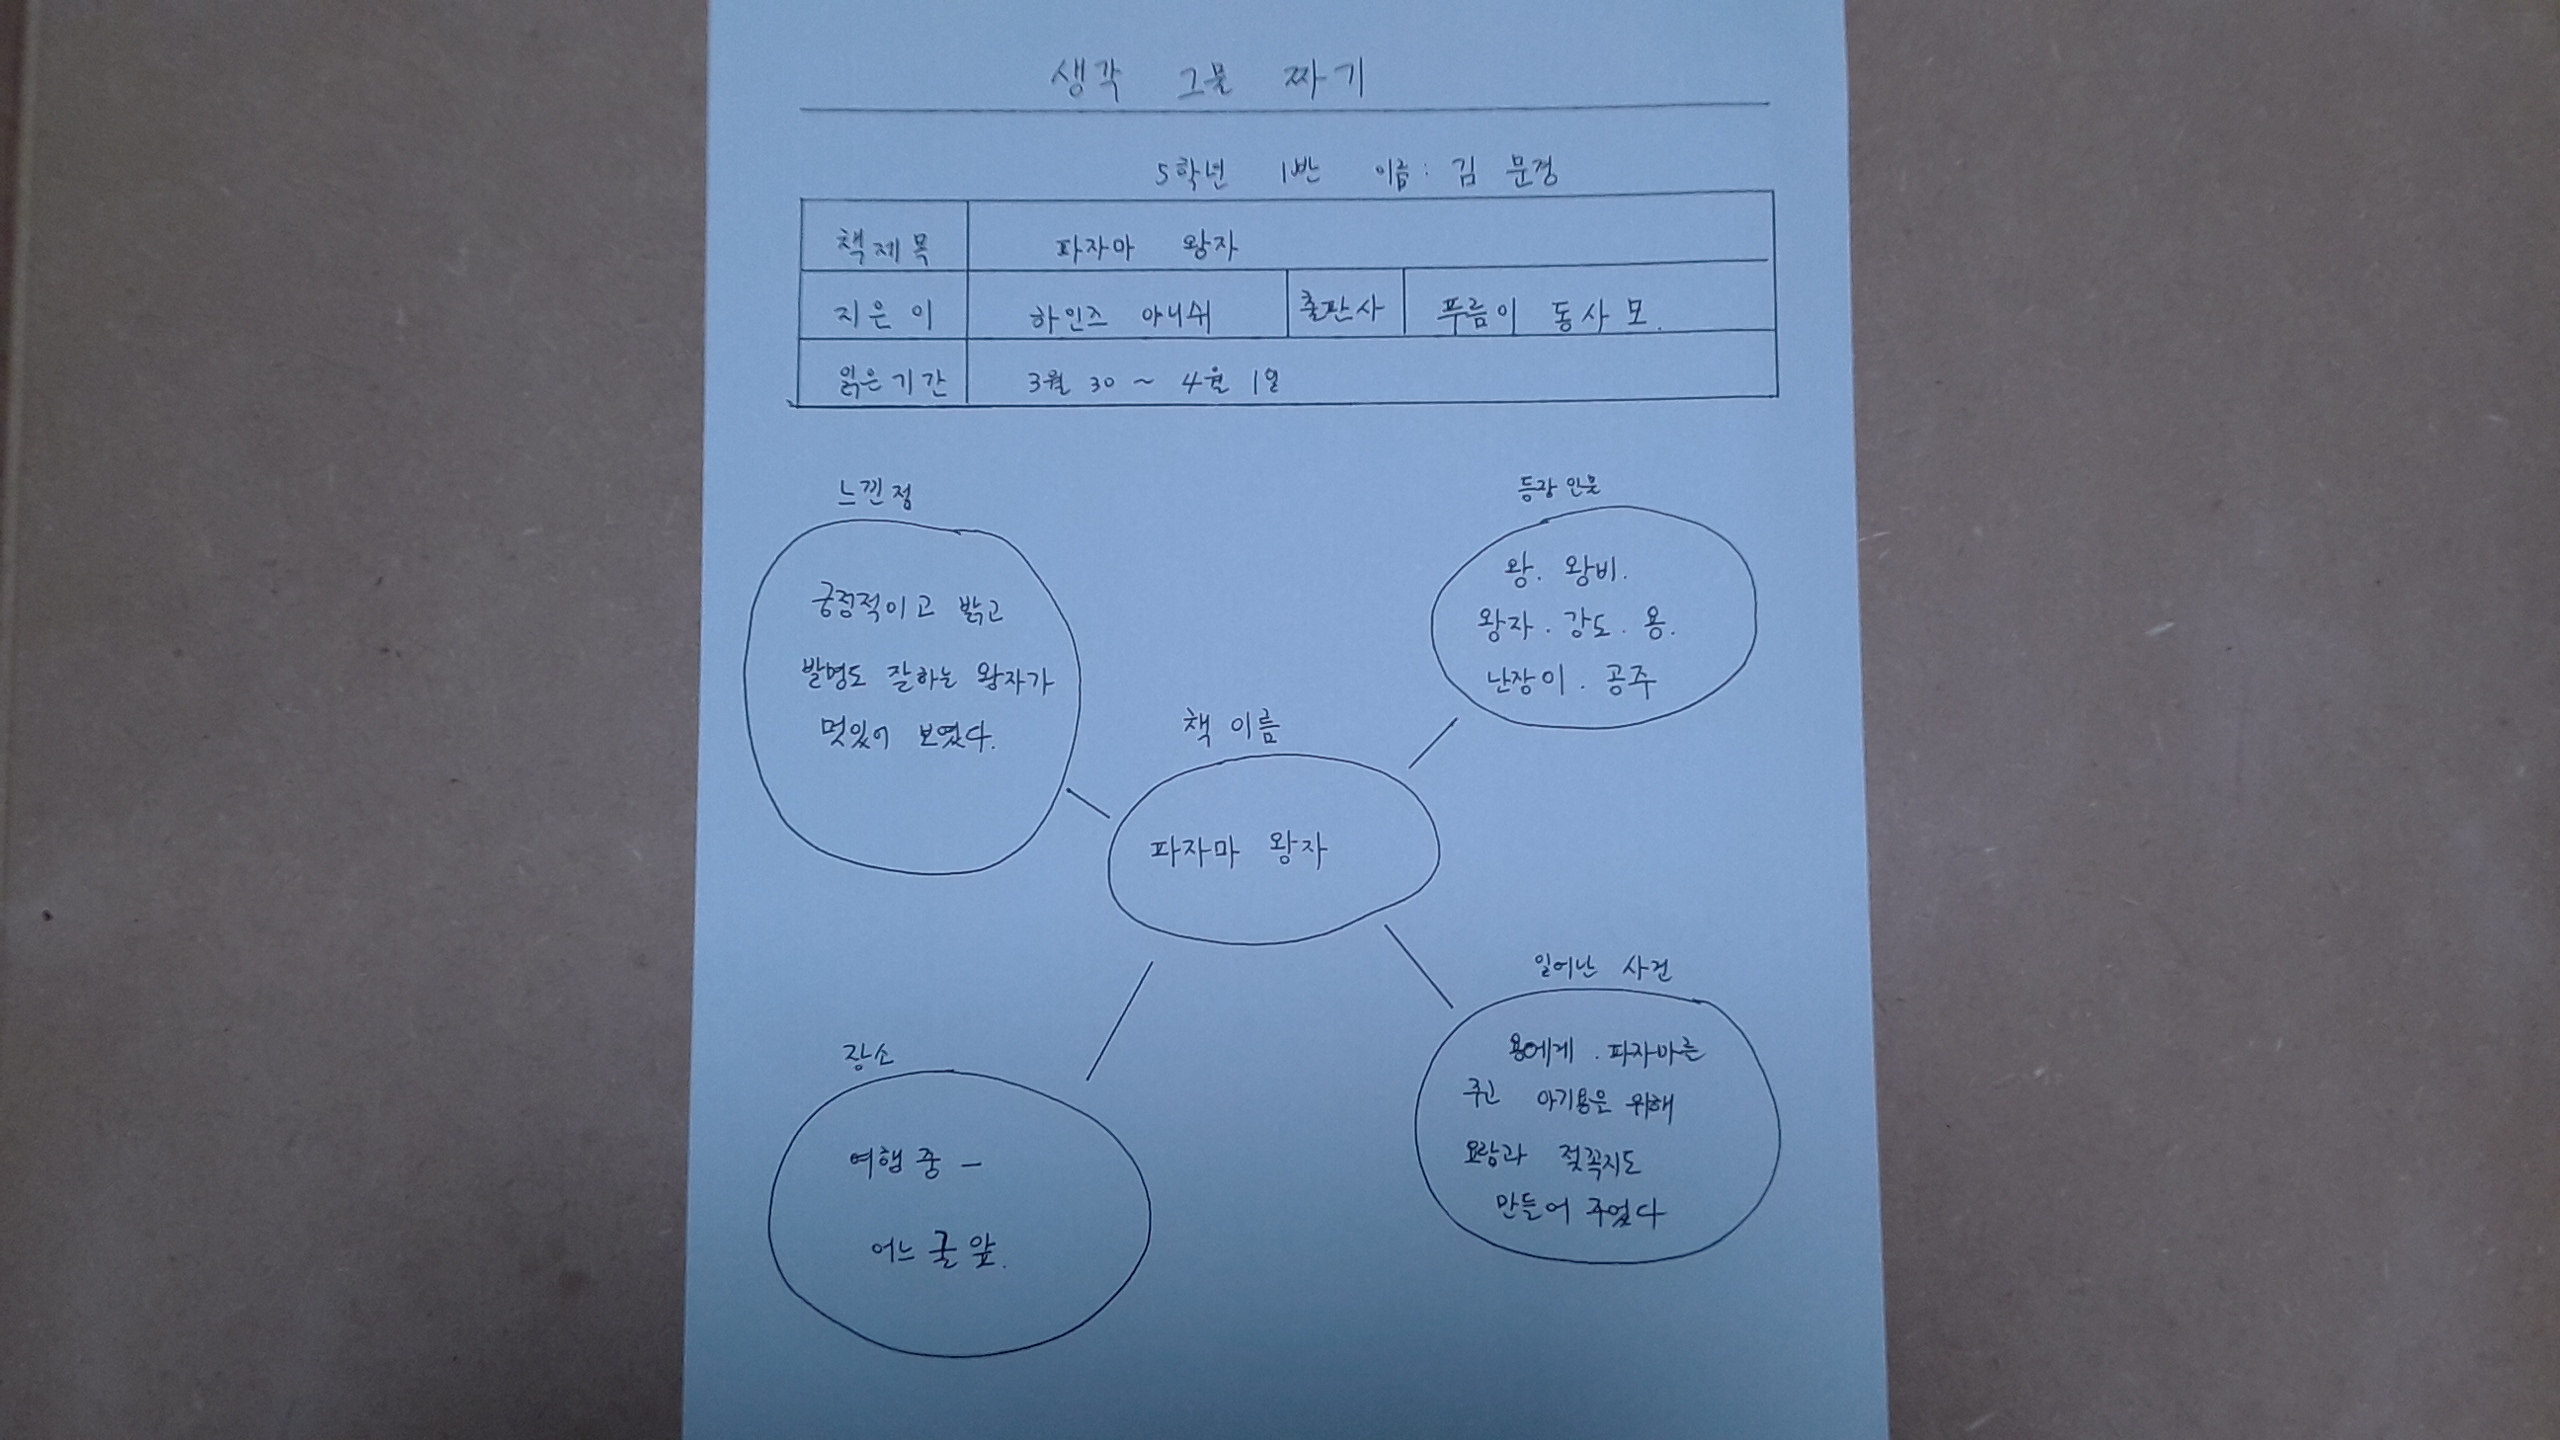 생각 그물 짜기
5학년 1반 이름: 김 문경
책제목 파자마 왕자
지은이 하인즈 야니쉬 출판사 푸름이 동사모.
읽은기간 3월 30 ~ 4월 1일
느낀점
긍정적이고 밝고
발명도 잘하는 왕자가
멋있어 보였다.
등장 인물
왕. 왕비.
왕자. 강도. 용.
난장이. 공주
책 이름
파자마 왕자
장소
여행중 -
어느 굴 앞.
일어난 사건
용에게. 파자마를
주고 아기용은 위해
요람과 젖꼭지도
만들어 주었다